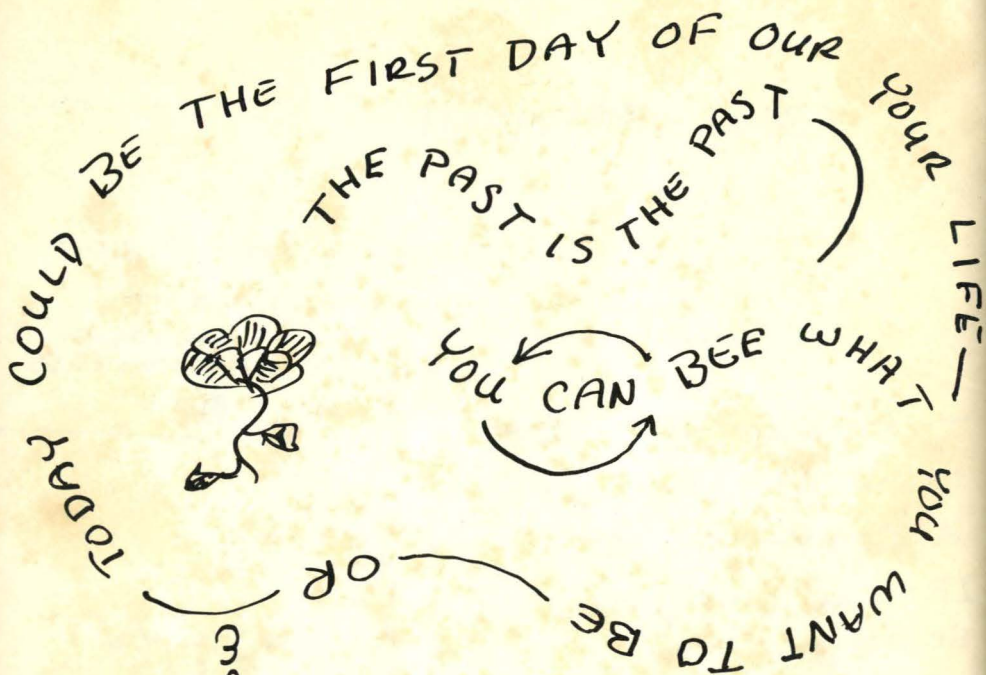 TODAY COULD BE THE FIRST DAY OF OUR YOUR LIFE —
THE PAST IS THE PAST
YOU CAN BEE WHAT YOU WANT TO BE
OR